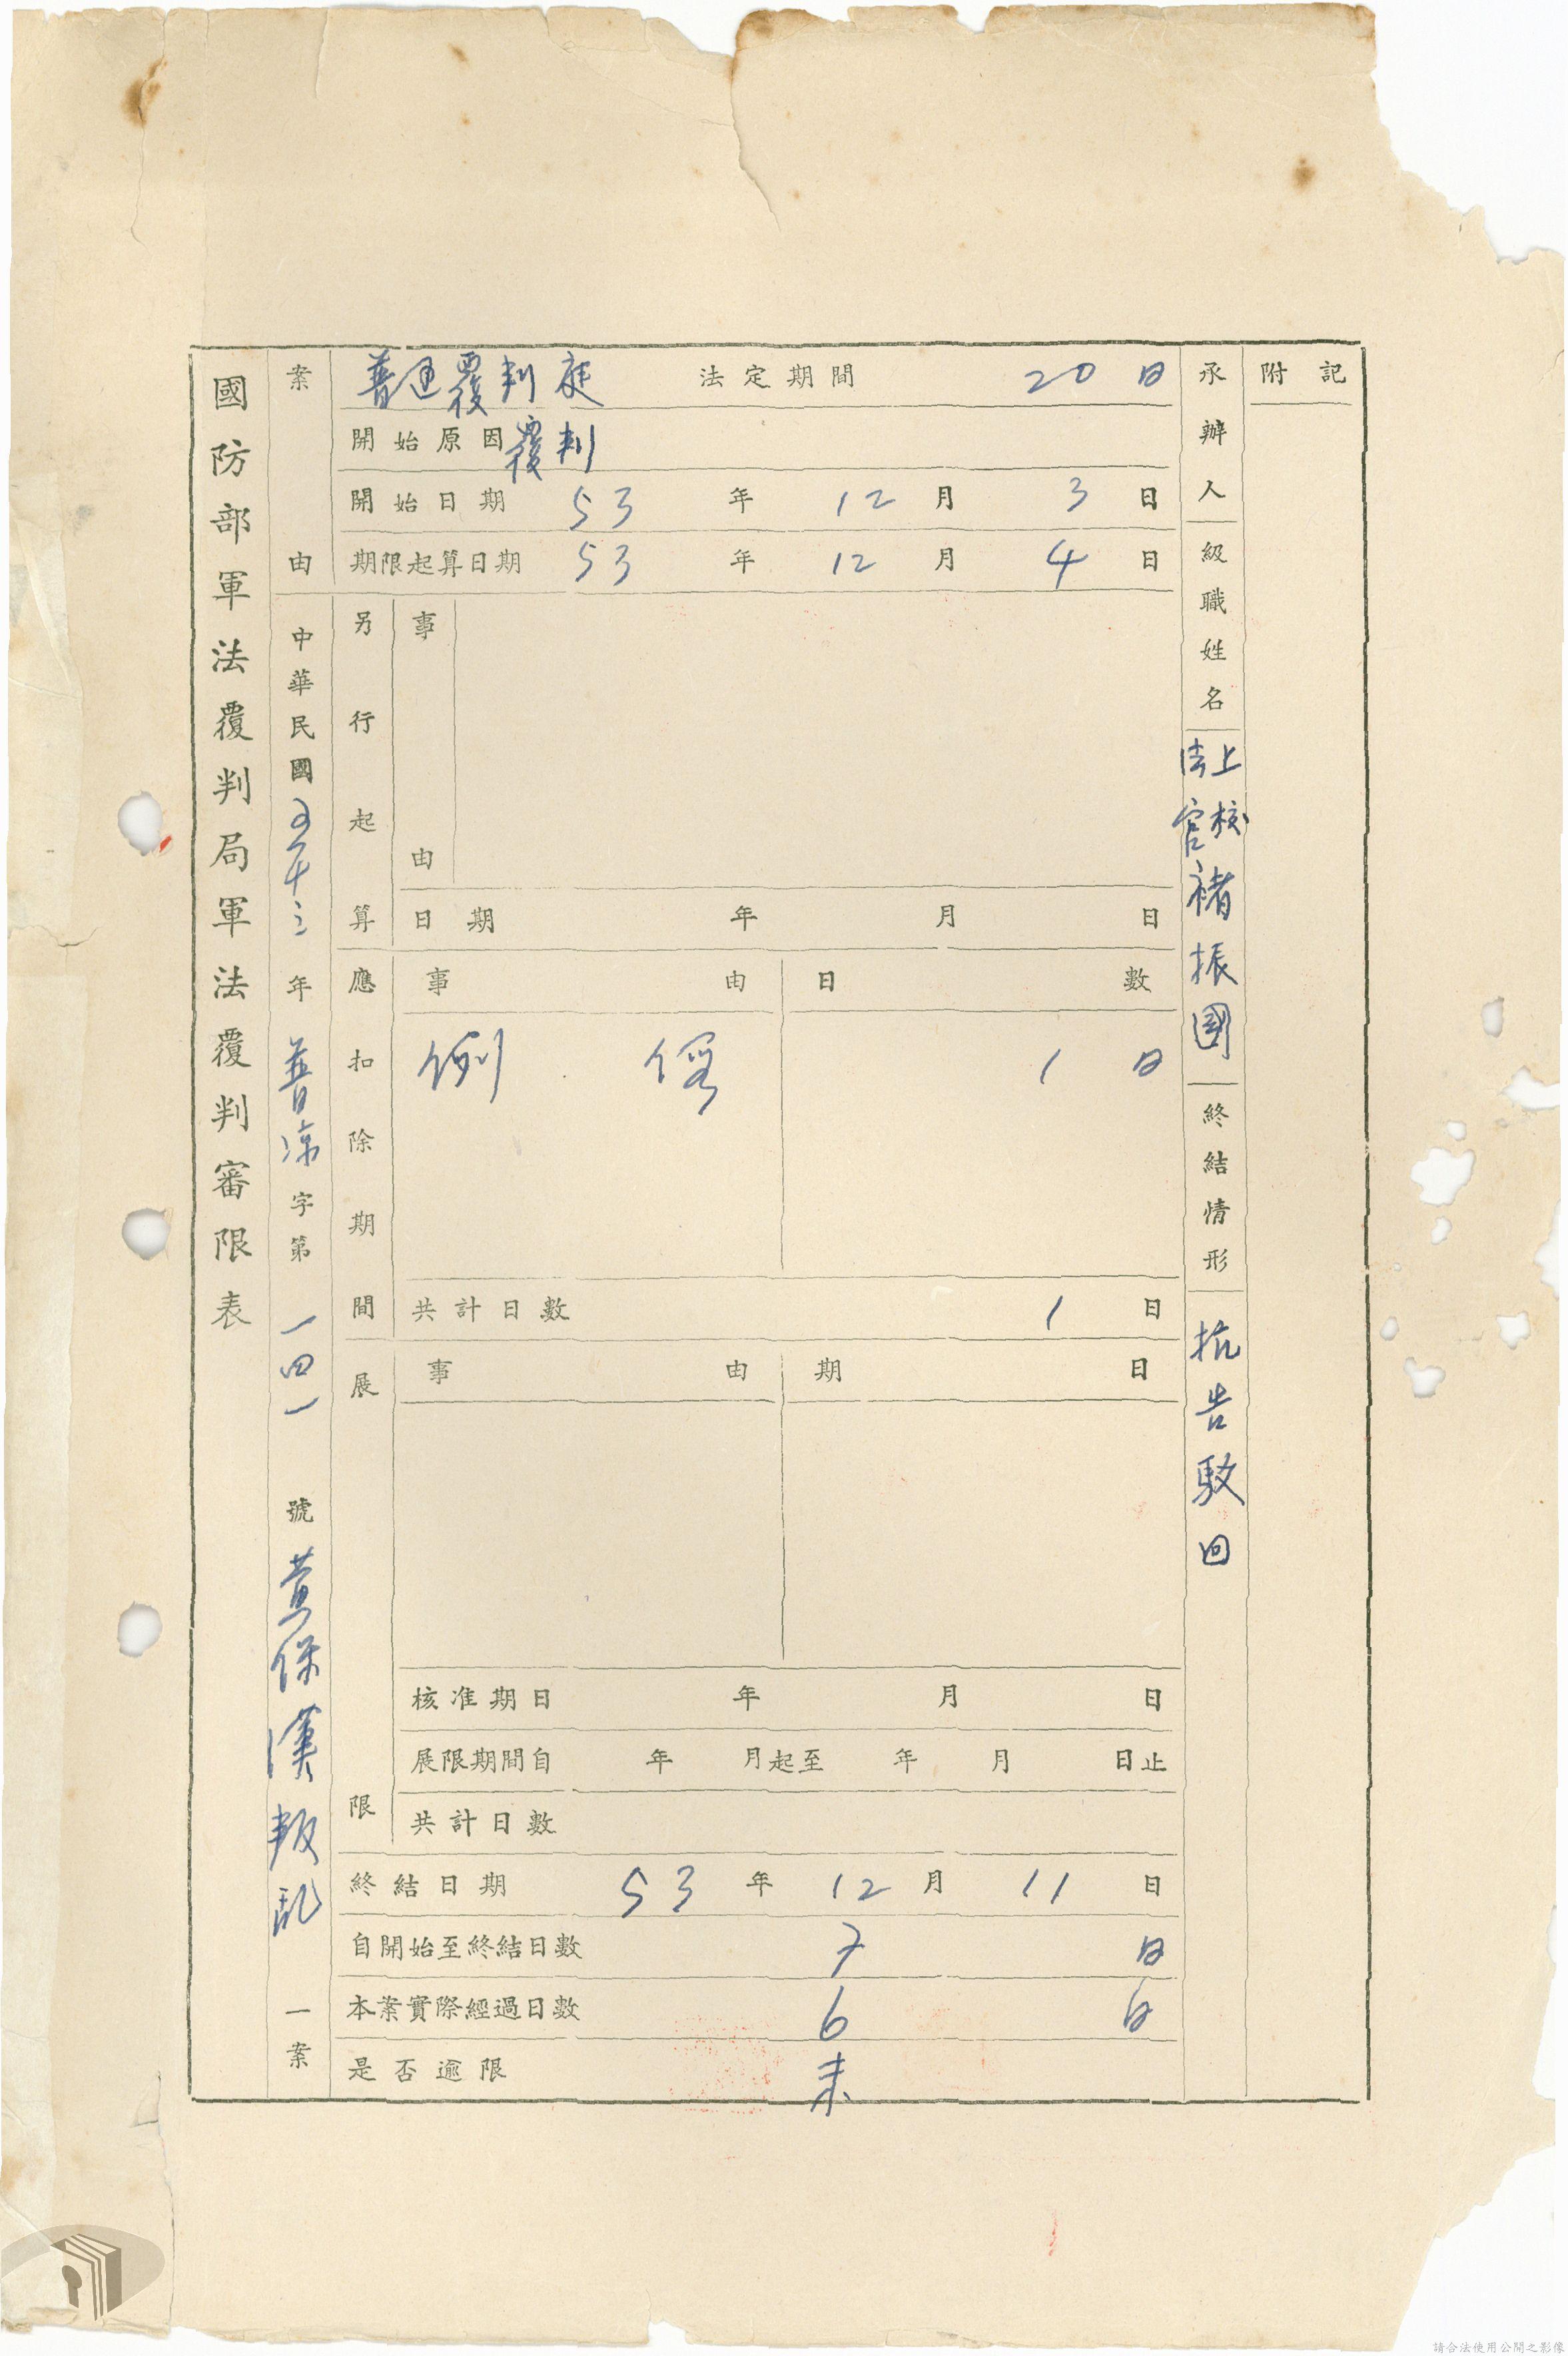 國防部軍法覆判局軍法覆判審限表
案由
中華民國五十三年普涼字第一四一號黃保漢叛乱一案
普通覆判庭 法定期間 20日
開始原因 覆判
開始日期 53年12月3日
期限起算日期 53年12月4日
另行起算
事由
日期 年 月 日
應扣除期間
事由 日數
例 1日
共計日數 1日
展限
事由 期日
核准期日 年 月 日
展限期間自 年 月起至 年 月 日止
共計日數
終結日期 53年12月11日
自開始至終結日數 7日
本案實際經過日數 6日
是否逾限 未
承辦人級職姓名
上校
法官
褚振國
終結情形
抗告駁回
附記
請合法使用公開之影像